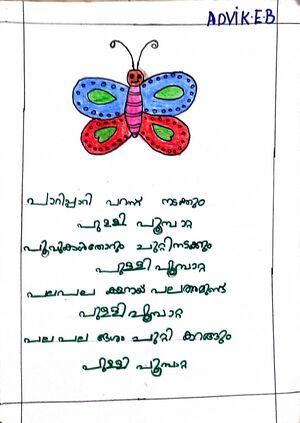 ADVIK.E.B
പാറിപ്പാറി പറന്ന് നടക്കും
പുള്ളി പൂമ്പാറ്റ
പൂവുകൾതോറും ചുറ്റിനടക്കും
പുള്ളിപൂമ്പാറ്റ
പലപല
പുള്ളിപൂമ്പാറ്റ
പല പല ദേശം ചുറ്റി കറങ്ങും
പുള്ളി പൂമ്പാറ്റ